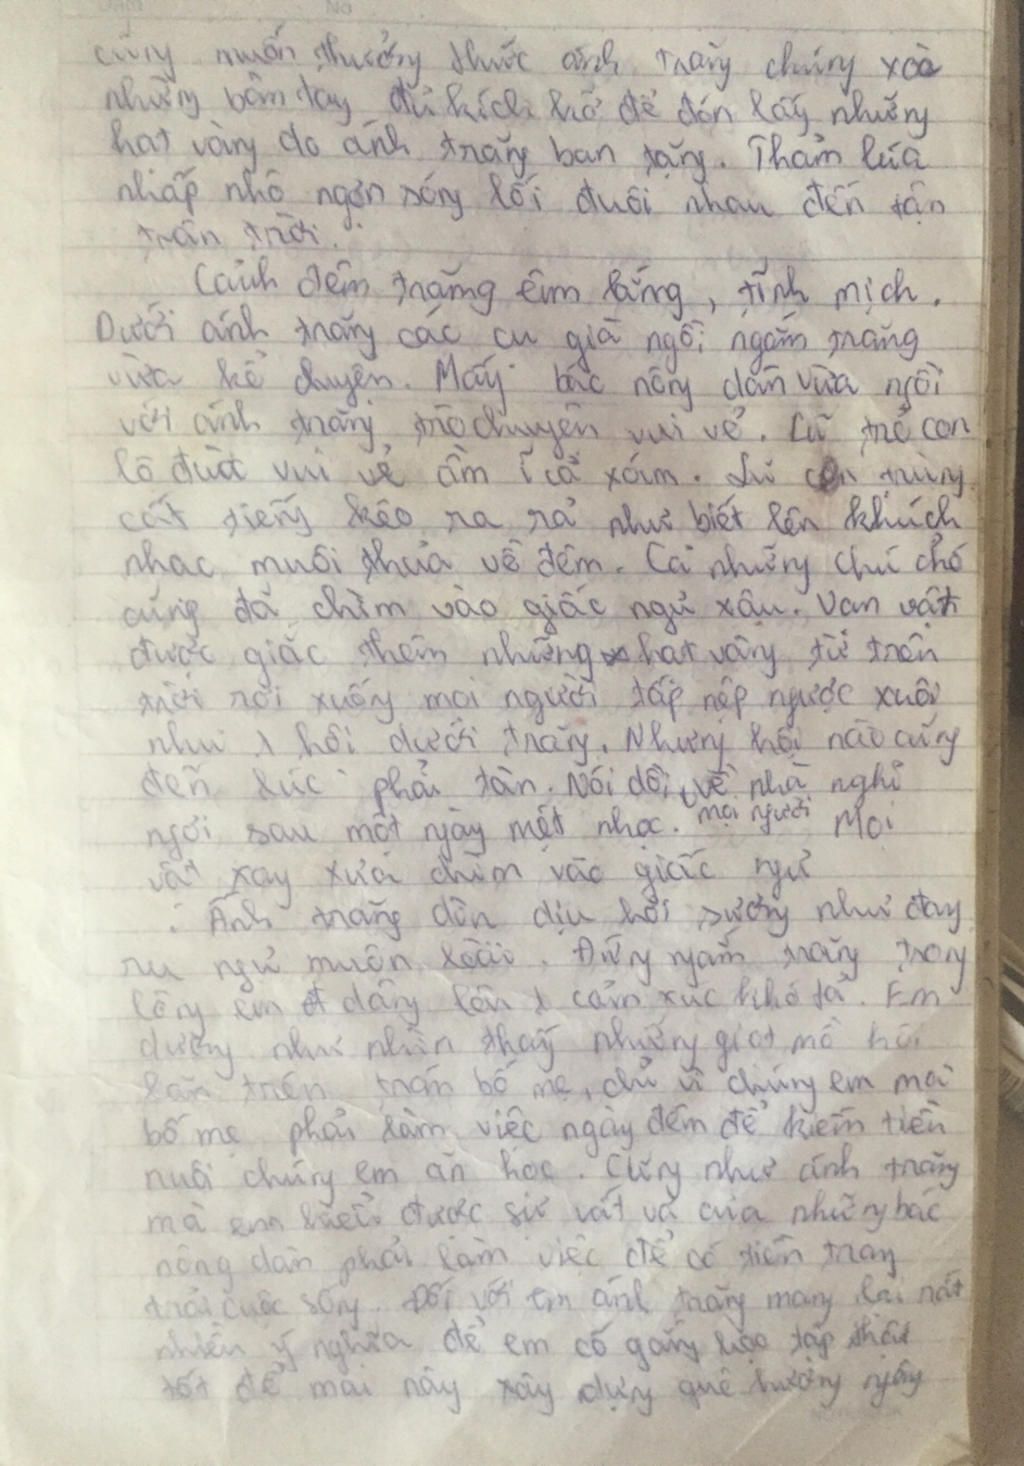 cũng muốn thưởng thức ánh trăng chúng xòe
những bàn tay đủ kích cỡ để đón lấy những
hat vàng do ánh trăng ban tặng. Thảm lúa
nhấp nhô ngọn sóng lối đuôi nhau đến tận
trân trời.
Cảnh đêm trăng êm lắng, tĩnh mịch.
Dưới ánh trăng các cu già ngồi ngắm trăng
vừa kể chuyện. Mấy bác nông dân vừa ngồi
với ánh trăng trò chuyện vui vẻ. Lũ trẻ con
lô đùa vui vẻ ầm ĩ cả xóm. Lũ côn trùng
cất tiếng kêo ra rả như biết lên khúch
nhac muôi thuả về đêm. Cả những chú chó
cũng đã chìm vào giấc ngủ xâu. Van vật
được giắc thêm những hat vàng từ trên
trời rơi xuống mọi người tấp nập ngược xuôi
như 1 hội dưới trăng. Nhưng hội nào cũng
đến lúc phải tàn. Nói dồi, về nhà nghỉ
ngơi sau một ngày mệt nhọc. mọi người Mọi
vật xay xưa chìm vào giấc ngủ
Ánh trăng dìu dịu hơi sương như đay
ru ngủ muôn loài. Đứng ngắm trăng trong
lòng em dâng lên 1 cảm xúc khó tả. Em
dường như nhìn thấy những giot mồ hôi
lăn trên trán bố mẹ, chỉ vì chúng em mà
bố mẹ phải làm việc ngày đêm để kiếm tiền
nuôi chúng em ăn học. Cũng như ánh trăng
mà em hiểu được sự vất vả của những bác
nông dân phải làm việc để có tiền trang
trải cuộc sống. Đối với em ánh trăng mang lại rất
nhiều ý nghĩa để em cố gắng học tập thật
tốt để mai này xây dựng quê hương ngày